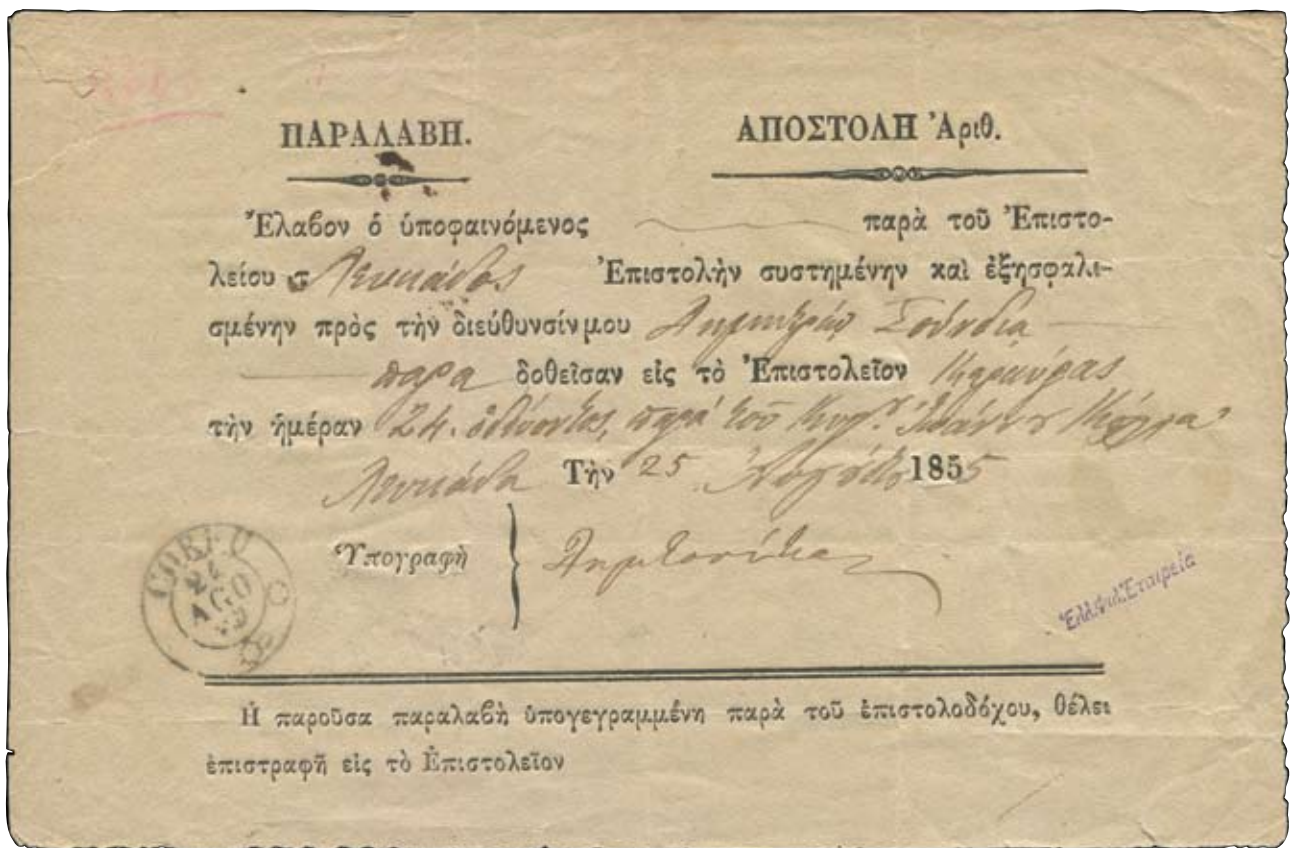 ΠΑΡΑΛΑΒΗ. ΑΠΟΣΤΟΛΗ Ἀριθ.
Ἔλαβον ὁ ὑποφαινόμενος παρὰ τοῦ Ἐπιστο-
λείου Λευκάδος Ἐπιστολὴν συστημένην καὶ ἐξησφαλι-
σμένην πρὸς τὴν διεύθυνσίν μου
παρα δοθεῖσαν εἰς τὸ Ἐπιστολεῖον Κερκύρας
τὴν ἡμέραν 24. ὁδεύοντος, παρά τοῦ
Λευκάδα Τὴν 25 Αὐγούστου 1855
Ὑπογραφὴ
CORFU
24
AGO
Ἑλλ.Φιλ.Ἑταιρεία
Ἡ παροῦσα παραλαβὴ ὑπογεγραμμένη παρὰ τοῦ ἐπιστολοδόχου, θέλει
ἐπιστραφῆ εἰς τὸ Ἐπιστολεῖον